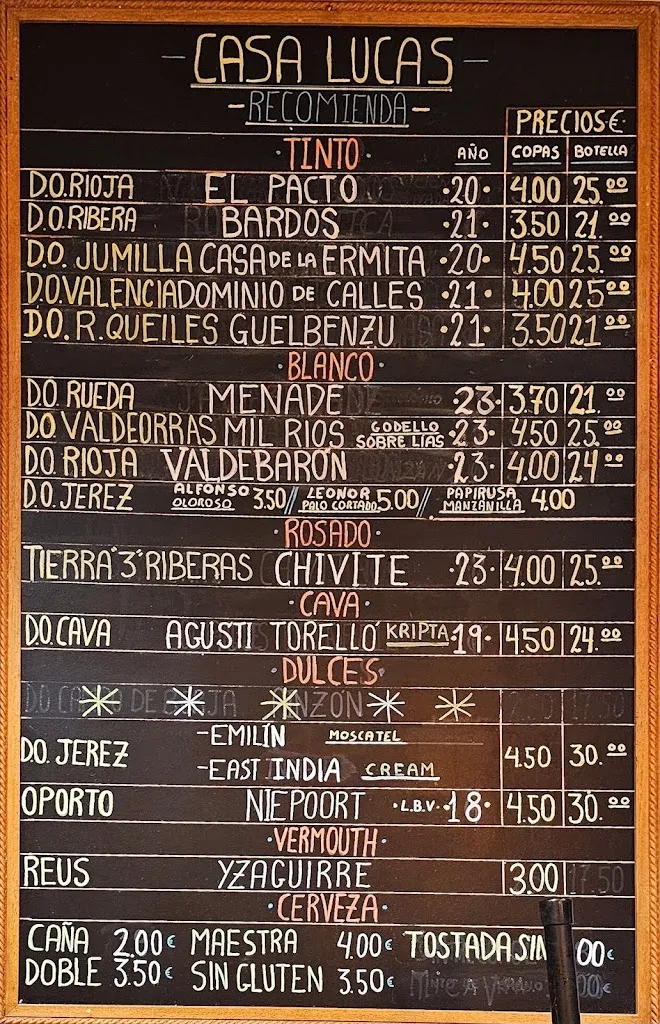 CASA LUCAS
-RECOMIENDA-
PRECIOS€
·TINTO· AÑO COPAS BOTELLA
D.O.RIOJA EL PACTO ·20· 4.00 25.00
D.O.RIBERA BARDOS ·21· 3.50 21.00
D.O. JUMILLA CASA DE LA ERMITA ·20· 4.50 25.00
D.O.VALENCIA DOMINIO DE CALLES ·21· 4.00 25.00
D.O. R.QUEILES GUELBENZU ·21· 3.50 21.00
·BLANCO·
D.O. RUEDA MENADE ·23· 3.70 21.00
DO VALDEORRAS MIL RIOS GODELLO SOBRE LÍAS ·23· 4.50 25.00
D.O. RIOJA VALDEBARÓN ·23· 4.00 24.00
D.O. JEREZ ALFONSO OLOROSO 3.50 / LEONOR PALO CORTADO 5.00 / PAPIRUSA MANZANILLA 4.00
·ROSADO·
TIERRA "3" RIBERAS CHIVITE ·23· 4.00 25.00
·CAVA·
D.O.CAVA AGUSTI TORELLÓ KRIPTA ·19· 4.50 24.00
DULCES
D.O. JEREZ -EMILÍN MOSCATEL
-EAST INDIA CREAM 4.50 30.00
OPORTO NIEPOORT ·L.B.V.· 18· 4.50 30.00
·VERMOUTH·
REUS YZAGUIRRE 3.00 17.50
·CERVEZA·
CAÑA 2.00€ MAESTRA 4.00€ TOSTADA SIN 00€
DOBLE 3.50€ SIN GLUTEN 3.50€